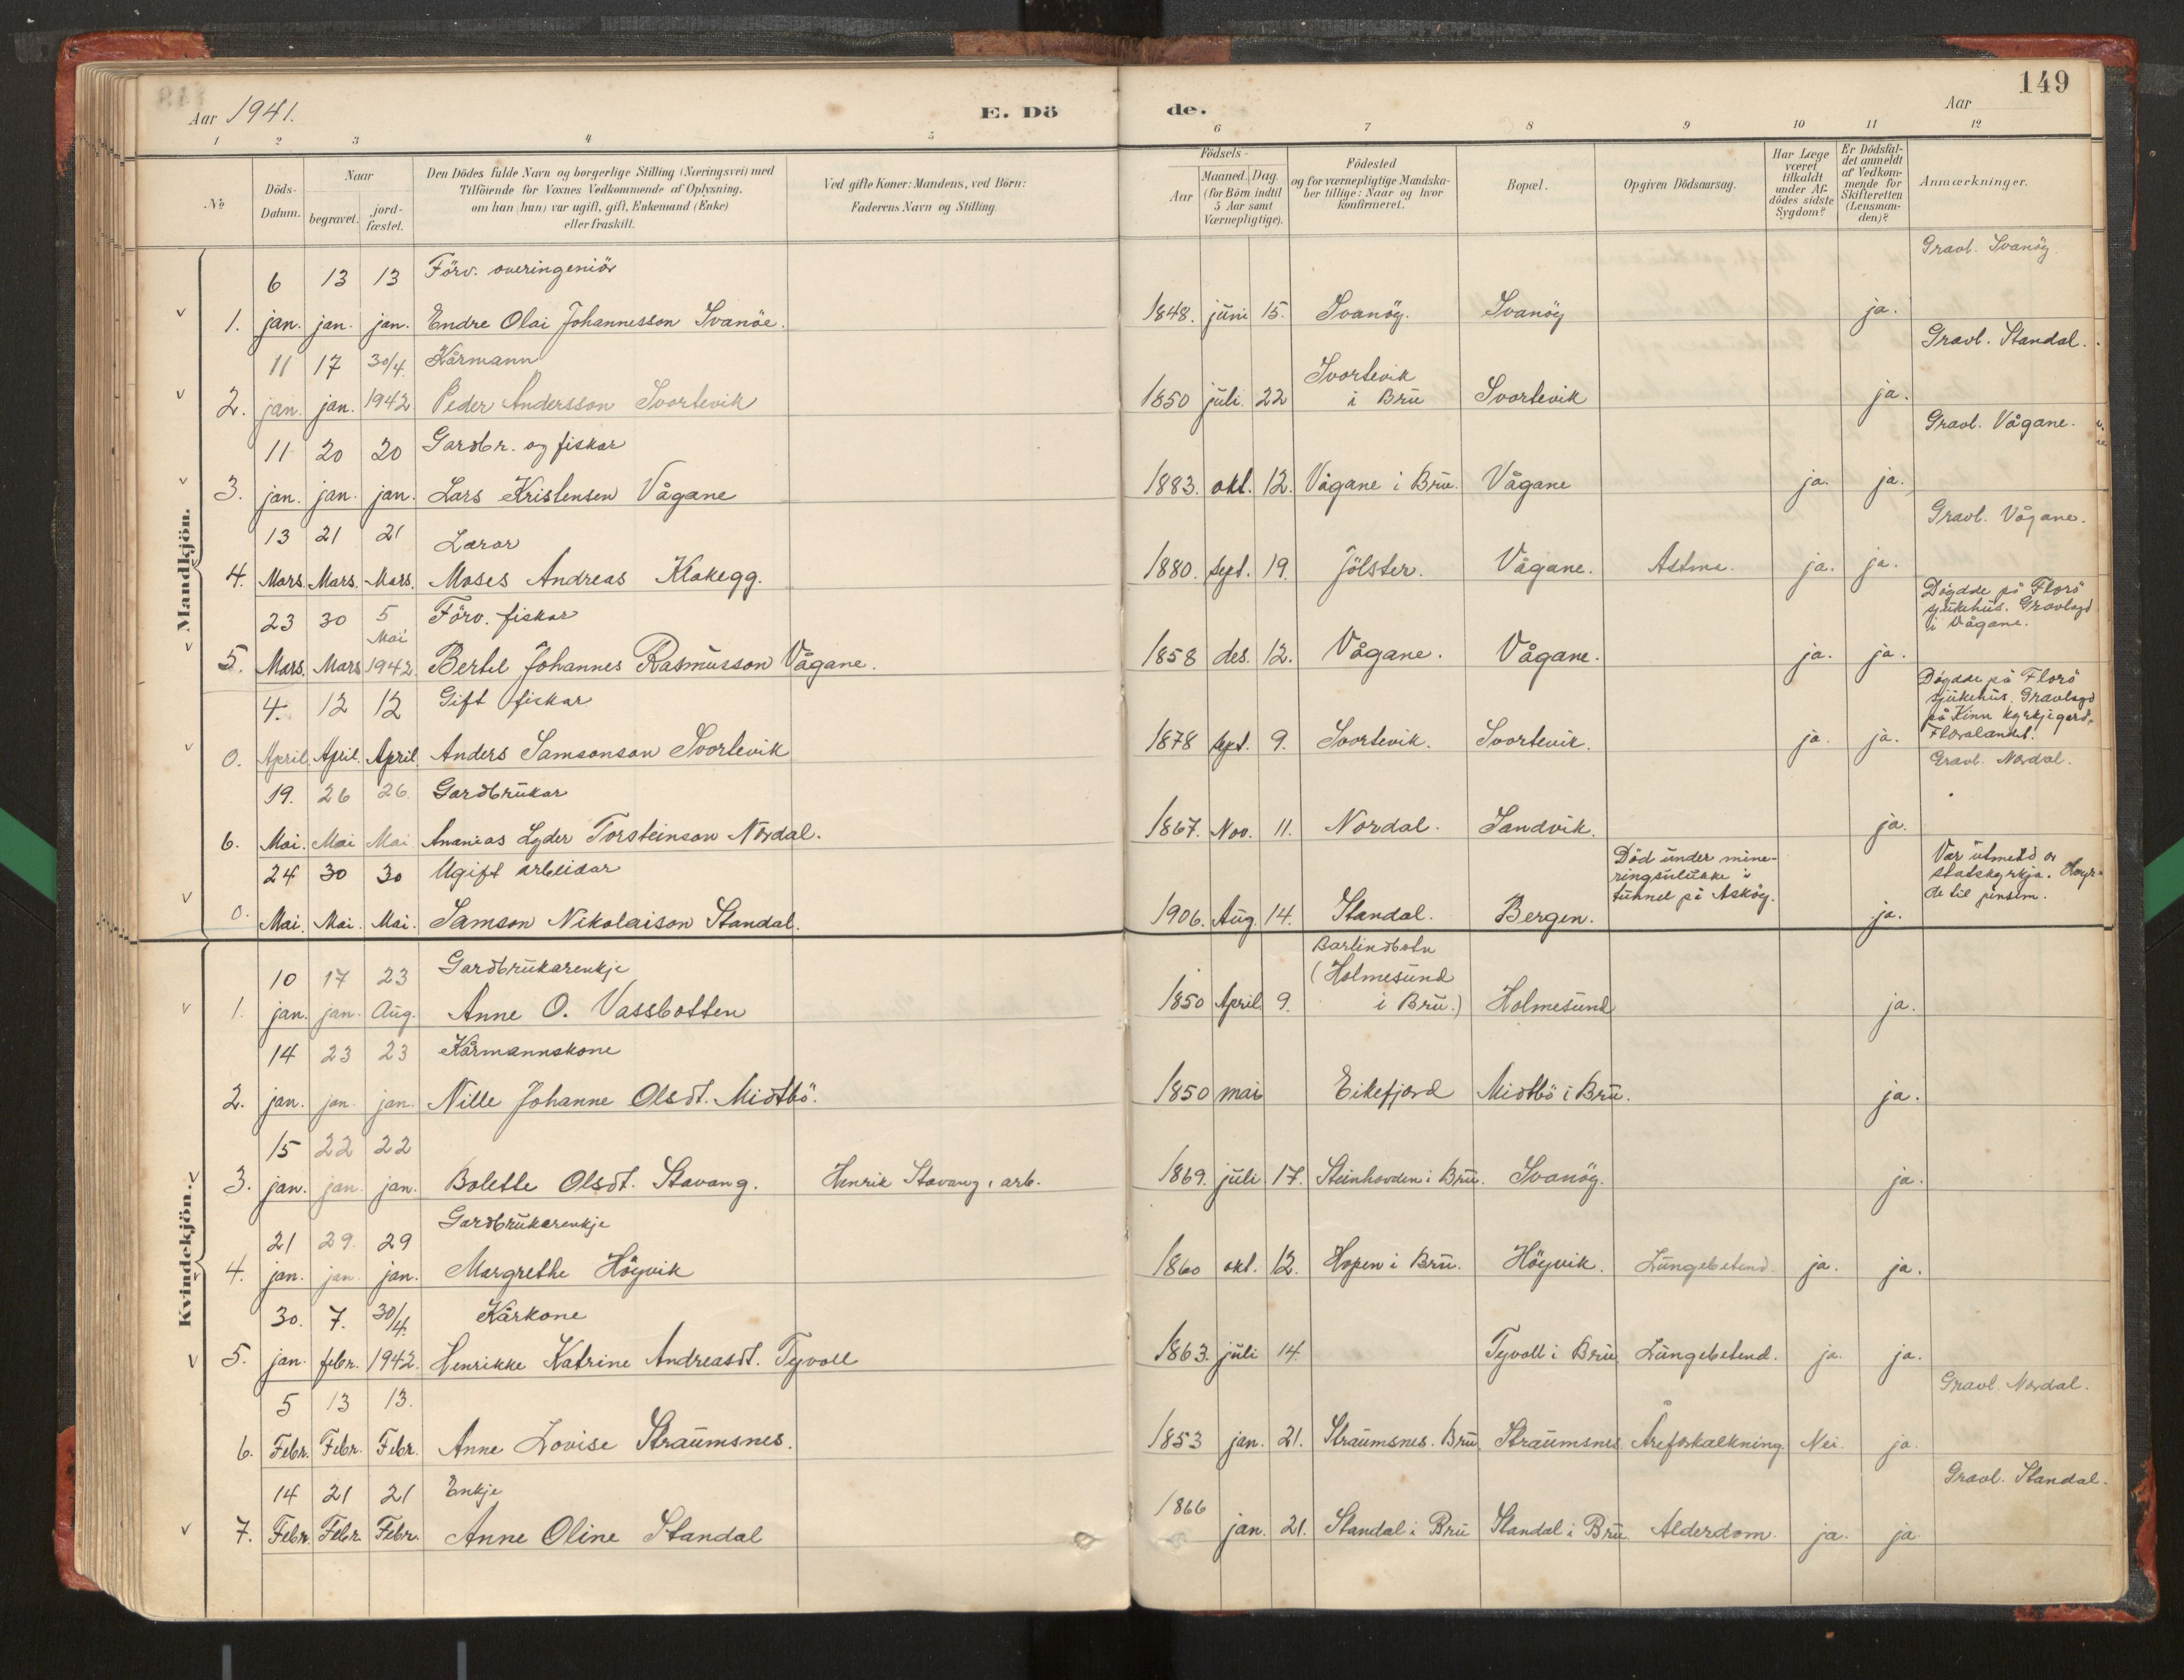 149
Aar 1941.
E. Dö de.
Aar
1 2 3 4 5 6 7 8 9 10 11 12
№
Döds-Datum.
Naar
begravet.
jord-fæstet.
Den Dödes fulde Navn og borgerlige Stilling (Næringsvei) med
Tilföiende for Voxnes Vedkommende af Oplysning.
om han (hun) var ugift, gift, Enkemand (Enke)
eller fraskilt.
Ved gifte Koner: Mandens, ved Börn:
Faderens Navn og Stilling.
Födsels-
Aar
Maaned. Dag.
(for Börn indtil
5 Aar samt
Værnepligtige).
Födested
og for værnepligtige Mandska-
ber tillige: Naar og hvor
konfirmeret.
Bopæl.
Opgiven Dödsaarsag.
Har Læge
været
tilkaldt
under Af-
dödes sidste
Sygdom?
Er Dödsfal-
det anmeldt
af Vedkom-
mende for
Skifteretten
(Lensman-
den)?
Anmærkninger.
Mandkjön.
6 13 13 Förv. overingeniör Gravl. Svanöy.
1. jan. jan. jan. Endre Olai Johannesson Svanöe. 1848. juni 15. Svanöy. Svanöy ja.
11 17 30/4. Kårmann Svortevik Gravl. Standal.
2. jan. jan. 1942 Peder Andersson Svortevik 1850 juli 22 i Bru Svortevik ja.
11 20 20 Gardbr. og fiskar Gravl. Vågane.
3. jan. jan. jan. Lars Kristensen Vågane 1883. okt. 12. Vågane i Bru. Vågane ja. ja.
13 21 21 Lærar Gravl. Vågane.
4. Mars. Mars. Mars. Moses Andreas Klakegg. 1880. sept. 19. Jölster. Vågane. Astma. ja. ja.
23 30 5 Mai Förv. fiskar Döydde på Florö
sjukehus. Gravlagd
i Vågane.
5. Mars. Mars 1942. Bertel Johannes Rasmusson Vågane. 1858 des. 12. Vågane. Vågane. ja. ja.
4. 12 12 Gift fiskar Döydde på Florö
sjukehus. Gravlagd
på Kinn kyrkjegard,
Florelandet.
0. April. April. April Anders Samsonson Svortevik 1878 sept. 9. Svortevik. Svortevik. ja. ja.
19. 26 26. Gardbrukar Gravl. Nordal.
6. Mai. Mai Mai. Ananias Lyder Torsteinson Nordal. 1867. Nov. 11. Nordal. Sandvik. ja.
24 30 30 Ugift arbeidar Död under mine-
ringsulukke i
tunnel på Asköy.
Var utmeld or
statskyrkja. Höyr-
de til pinsem.
0. Mai. Mai. Mai. Samson Nikolaison Standal. 1906. Aug. 14. Standal. Bergen. ja.
Kvindekjön.
10 17 23 Gardbrukarenkje Barlindbotn
(Holmesund
1. jan. jan. Aug. Anne O. Vassbotten 1850 April 9. i Bru.) Holmesund ja.
14 23 23 Kårmannskone
2. jan. jan. jan. Nille Johanne Olsdt. Midtbö. 1850 mai Eikefjord Midtbö i Bru. ja.
15 22 22
3. jan. jan. jan. Bolette Olsdt. Stavang. Henrik Stavang, arb. 1869. juli 17. Steinhovden i Bru. Svanöy. ja.
21 29. 29 Gardbrukarenkje
4. jan. jan. jan. Margrethe Höyvik 1860 okt. 12. Hopen i Bru. Höyvik. Lungebetend. ja. ja.
30. 7. 30/4. Kårkone
5. jan. febr. 1942. Henrikke Katrine Andreasdt. Tyvoll 1863. juli 14. Tyvoll i Bru Lungebetend. ja. ja.
5 13 13. Gravl. Nordal.
6. Febr. Febr. Febr. Anne Lovise Straumsnes. 1853 jan. 21. Straumsnes. Bru Straumsnes. Åreforkalkning. Nei. ja.
14 21 21 Enkje Gravl. Standal.
7. Febr. Febr. Febr. Anne Oline Standal 1866 jan. 21. Standal i Bru Standal i Bru. Alderdom. ja. ja.